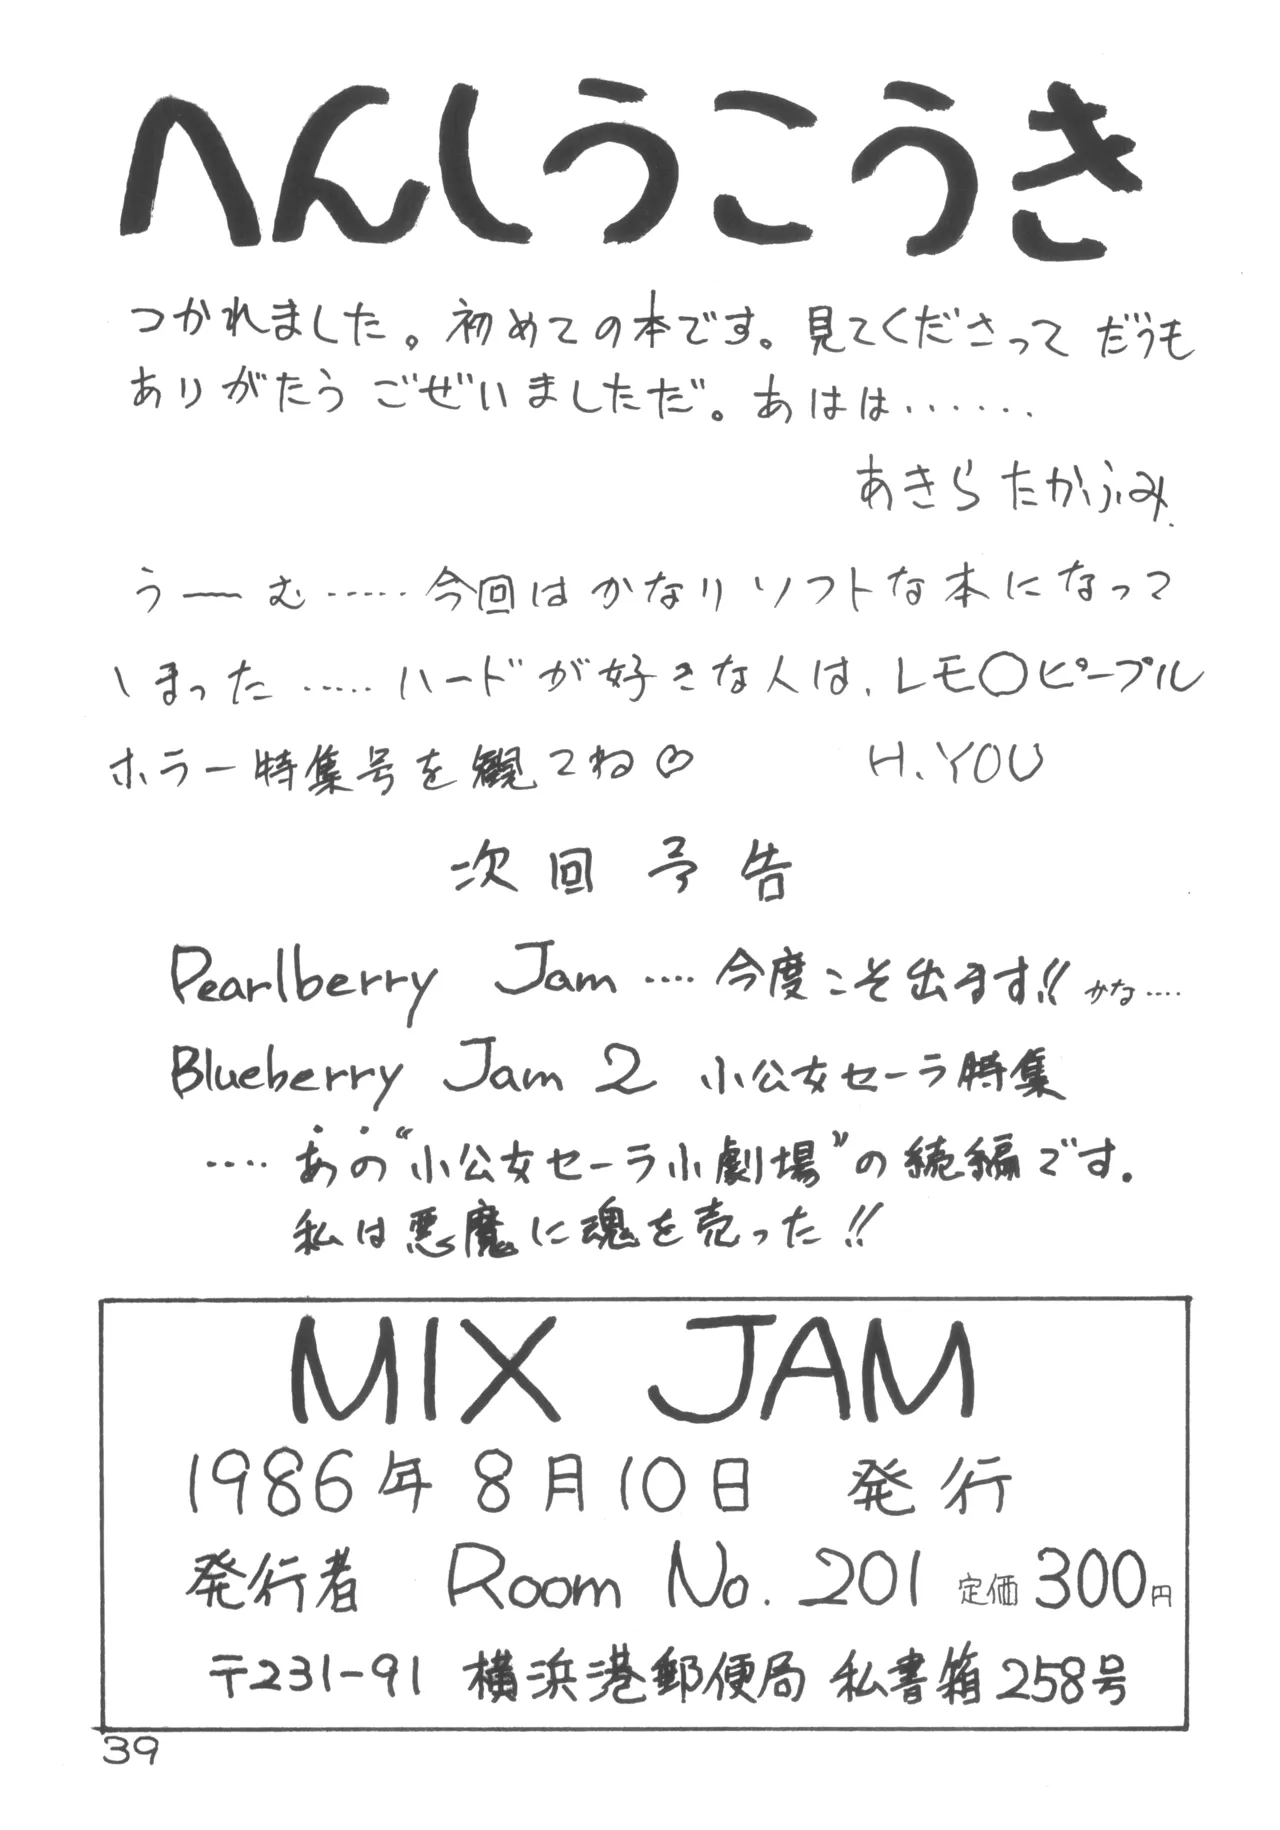 へんしうこうき
つかれました。初めての本です。見てくださって だうも
ありがたう ごぜいましただ。あはは……
あきら たかふみ.
うーむ……今回は かなり ソフトな本になって
しまった …… ハードが好きな人は、レモ○ピープル
ホラー特集号を観てね♡ H.YOU
次回予告
Pearlberry Jam ‥‥ 今度こそ出ます!! かな‥‥
Blueberry Jam 2 小公女セーラ特集
‥‥ あの“小公女セーラ小劇場”の続編です.
私は悪魔に魂を売った!!
MIX JAM
1986年8月10日 発行
発行者 Room No. 201 定価300円
〒231-91 横浜港郵便局 私書箱258号
39